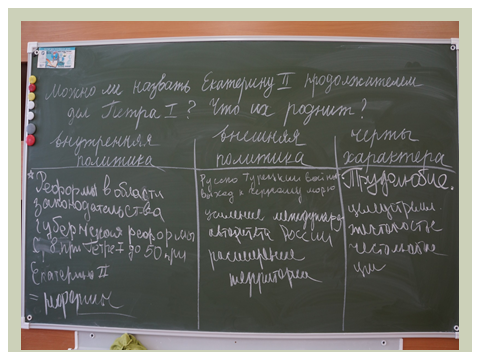 Можно ли назвать Екатерину II продолжателем
дел Петра I? Что их роднит?
внутренняя
политика
Реформы в области
законодательства
Губернская реформы
при Петре I до 50 при
Екатерине II
= реформы
внешняя
политика
Русско Турецкии войны
выход к Черному морю
усиление международ
авторитета России
расширение
территории
черты
характера
Трудолюбие.
целеустрем
жестокость
честолюбие